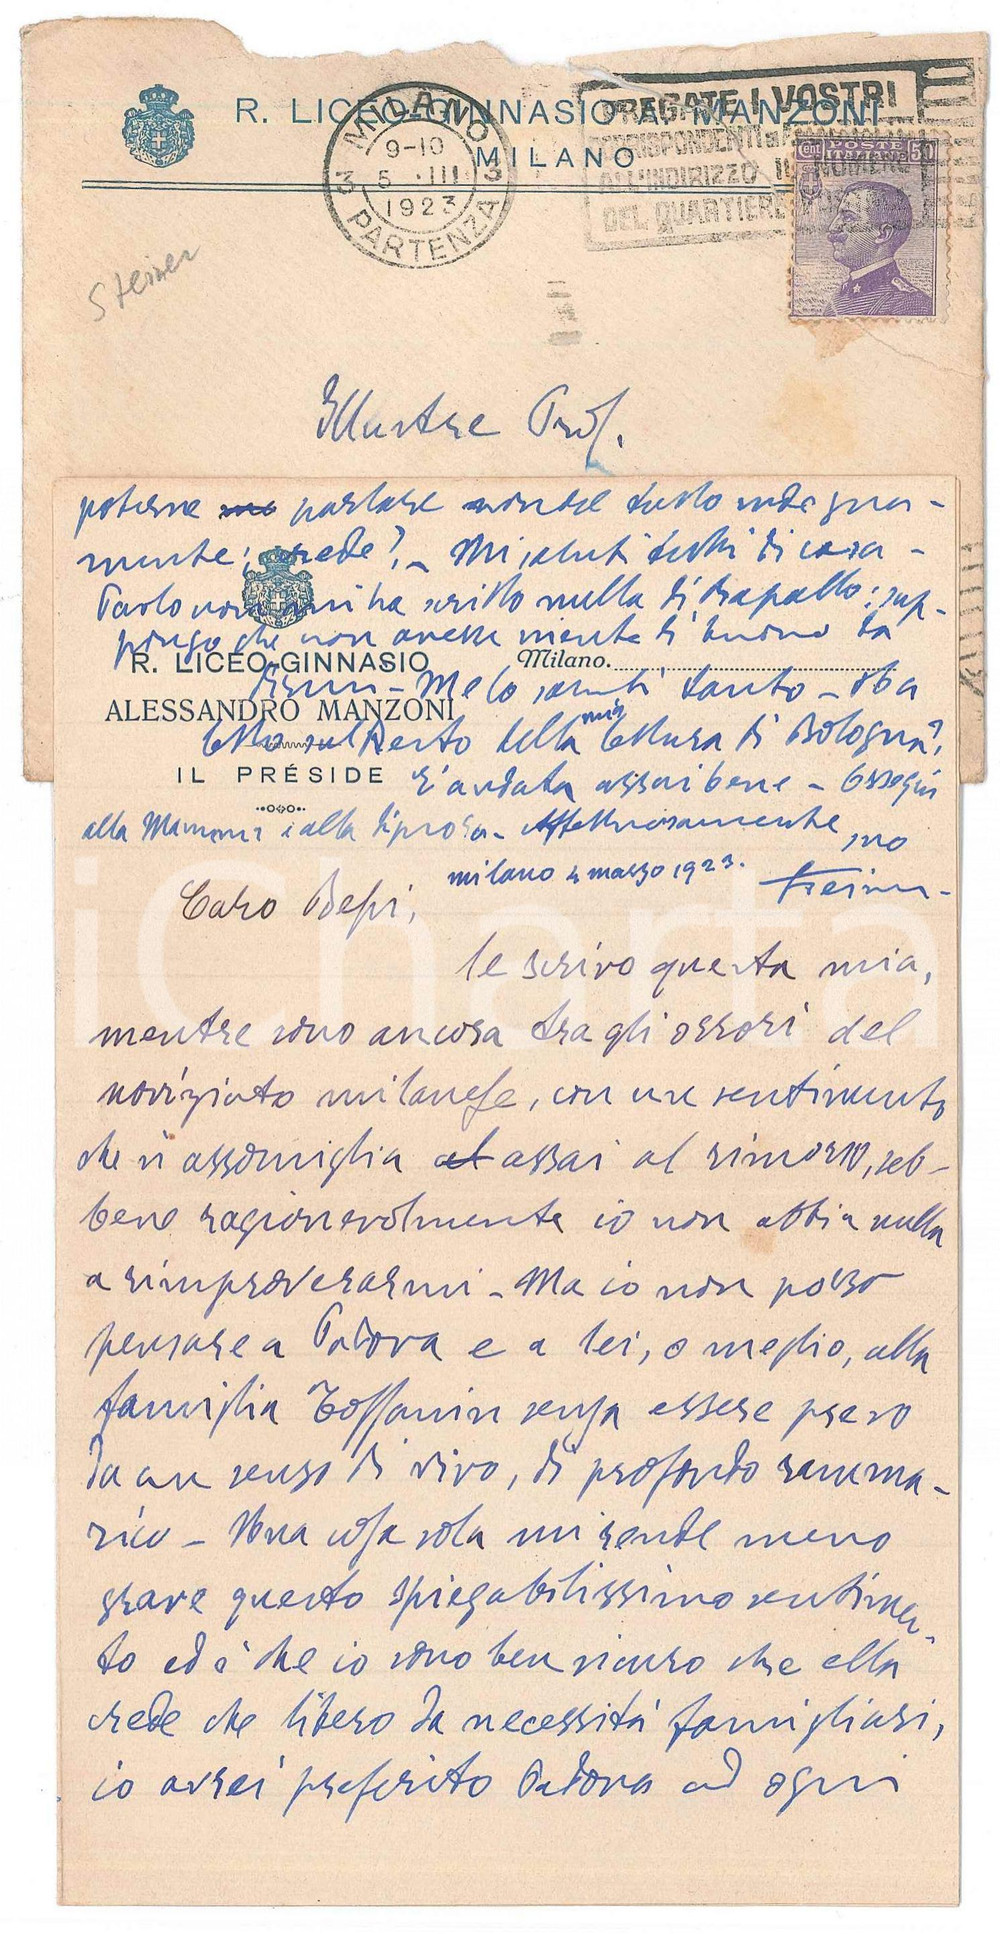 R. LICEO-GINNASIO A. MANZONI
MILANO
MILANO
9-10
5 · III
1923
3 PARTENZA 3
PREGATE I VOSTRI
CORRISPONDENTI DI
ALL'INDIRIZZO IL NUMERO
DEL QUARTIERE POSTALE
Cent POSTE ITALIANE 50
Steiner
Illustre Prof.
poterne parlare tutto indegna-
mente; crede? - Mi saluti tutti di casa -
Paolo non mi ha scritto nulla di Rapallo: sup-
pongo che non avesse niente di buono da
- Me lo saluti tanto - 
letto sul Resto della mia lettura di Bologna?
È andata assai bene - Ossequi
alla Mamma e alla Sposa - Affettuosamente suo
R. LICEO-GINNASIO
Milano
ALESSANDRO MANZONI
IL PRÉSIDE
milano 4 marzo 1923.
Caro Bepi,
le scrivo questa mia,
mentre sono ancora tra gli orrori del
noviziato milanese, con un sentimento
che si assomiglia assai al rimorso, seb-
bene ragionevolmente io non abbia nulla
a rimproverarmi - Ma io non posso
pensare a Padova e a lei, o meglio, alla
famiglia Toffanin senza essere preso
da un senso di vivo, di profondo ramma-
rico - Una cosa sola mi rende meno
grave questo spiegabilissimo sentimen-
to ed è che io sono ben sicuro che ella
crede che libero da necessità famigliari,
io avrei preferito Padova ad ogni
iCharta